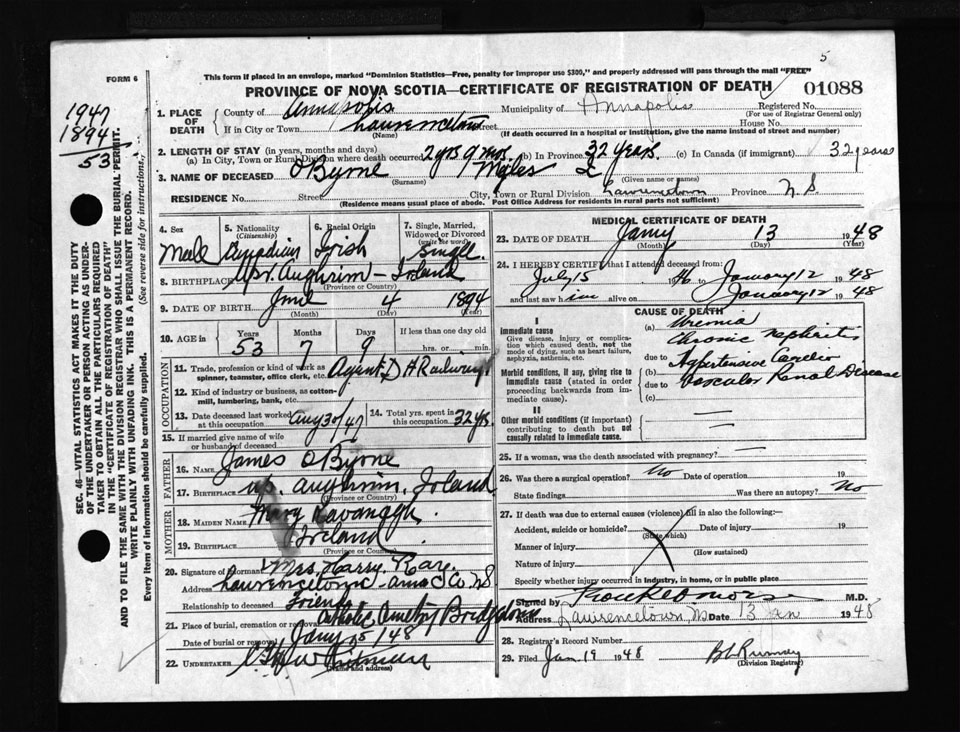 5
FORM 6
This form if placed in an envelope, marked "Dominion Statistics—Free, penalty for improper use $300," and properly addressed will pass through the mail "FREE"
PROVINCE OF NOVA SCOTIA—CERTIFICATE OF REGISTRATION OF DEATH 01088
1947
1894
53
SEC. 46—VITAL STATISTICS ACT MAKES IT THE DUTY
OF THE UNDERTAKER OR PERSON ACTING AS UNDER-
TAKER TO OBTAIN ALL THE PARTICULARS REQUIRED
IN THE "CERTIFICATE OF REGISTRATION OF DEATH"
AND TO FILE THE SAME WITH THE DIVISION REGISTRAR WHO SHALL ISSUE THE BURIAL PERMIT.
WRITE PLAINLY WITH UNFADING INK. THIS IS A PERMANENT RECORD.
Every item of information should be carefully supplied. (See reverse side for instructions.)
1. PLACE OF DEATH County of Annapolis Municipality of Annapolis Registered No.
(For use of Registrar General only)
If in City or Town Lawrencetown Street House No.
(Name) (If death occurred in a hospital or institution, give the name instead of street and number)
2. LENGTH OF STAY (in years, months and days)
(a) In City, Town or Rural Division where death occurred 2 yrs 9 mos. (b) In Province 32 years (c) In Canada (if immigrant) 32 years
3. NAME OF DECEASED O'Byrne Myles
(Surname) (Given name or names)
RESIDENCE No. Street City, Town or Rural Division Lawrencetown Province N.S.
(Residence means usual place of abode. Post Office Address for residents in rural parts not sufficient)
4. Sex 5. Nationality (Citizenship) 6. Racial Origin 7. Single, Married, Widowed or Divorced (write the word)
Male Canadian Irish Single
8. BIRTHPLACE Aughrim - Ireland
(Province or Country)
9. DATE OF BIRTH June 4 1894
(Month) (Day) (Year)
10. AGE in Years Months Days If less than one day old
53 7 9 hrs. or min.
OCCUPATION
11. Trade, profession or kind of work as spinner, teamster, office clerk, etc. Agent D A Railway
12. Kind of industry or business, as cotton-mill, lumbering, bank, etc.
13. Date deceased last worked at this occupation Aug 30/47 14. Total yrs. spent in this occupation 32 yrs.
15. If married give name of wife or husband of deceased
FATHER
16. NAME James O'Byrne
17. BIRTHPLACE Aughrim, Ireland
(Province or Country)
MOTHER
18. MAIDEN NAME Mary Kavanagh.
19. BIRTHPLACE Ireland
(Province or Country)
20. Signature of Informant Mrs. Harry
Address Lawrencetown - Anna Co. N.S
Relationship to deceased Friend
21. Place of burial, cremation or removal Catholic Cemetery Bridgetown
Date of burial or removal Jany 15/48
22. UNDERTAKER
(Name and address)
MEDICAL CERTIFICATE OF DEATH
23. DATE OF DEATH Jany 13 1948
(Month) (Day) (Year)
24. I HEREBY CERTIFY that I attended deceased from
July 15 1946 to January 12 1948
and last saw him alive on January 12 1948
CAUSE OF DEATH
I
Immediate cause
Give disease, injury or complication which caused death, not the mode of dying, such as heart failure, asphyxia, asthenia, etc.
(a) Uremia
Chronic nephritis
due to
Morbid conditions, if any, giving rise to immediate cause (stated in order proceeding backwards from immediate cause).
(b) Hypertensive Cardio
due to Vascular Renal Disease
(c)
II
Other morbid conditions (if important) contributing to death but not causally related to immediate cause.
25. If a woman, was the death associated with pregnancy? —
26. Was there a surgical operation? No Date of operation 19
State findings Was there an autopsy? No
27. If death was due to external causes (violence) fill in also the following:
Accident, suicide or homicide? Date of injury 19
(State which)
Manner of injury
(How sustained)
Nature of injury
Specify whether injury occurred in industry, in home, or in public place
Signed by M.D.
Address Lawrencetown NS Date 13 Jan 1948
28. Registrar's Record Number
29. Filed Jan 19 1948
(Division Registrar)